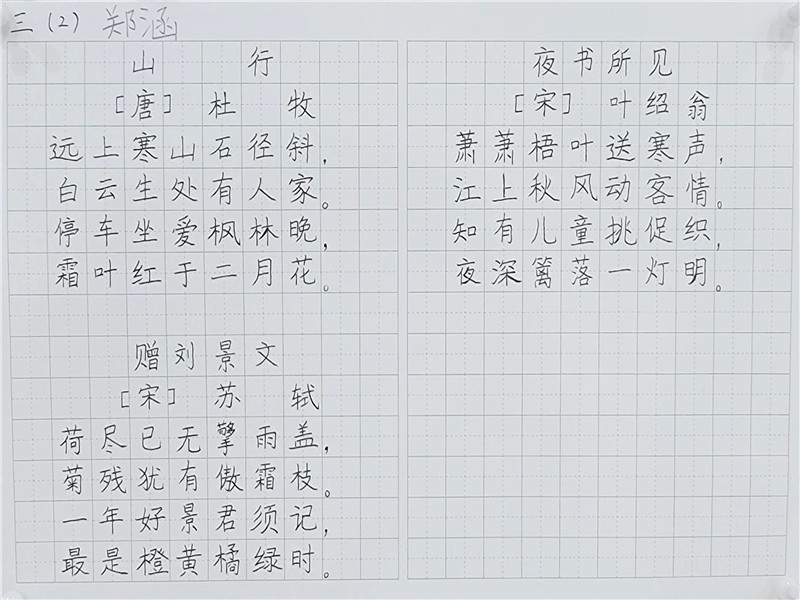 三（2） 郑涵
山行
[唐] 杜牧
远上寒山石径斜，
白云生处有人家。
停车坐爱枫林晚，
霜叶红于二月花。
赠刘景文
[宋] 苏轼
荷尽已无擎雨盖，
菊残犹有傲霜枝。
一年好景君须记，
最是橙黄橘绿时。
夜书所见
[宋] 叶绍翁
萧萧梧叶送寒声，
江上秋风动客情。
知有儿童挑促织，
夜深篱落一灯明。